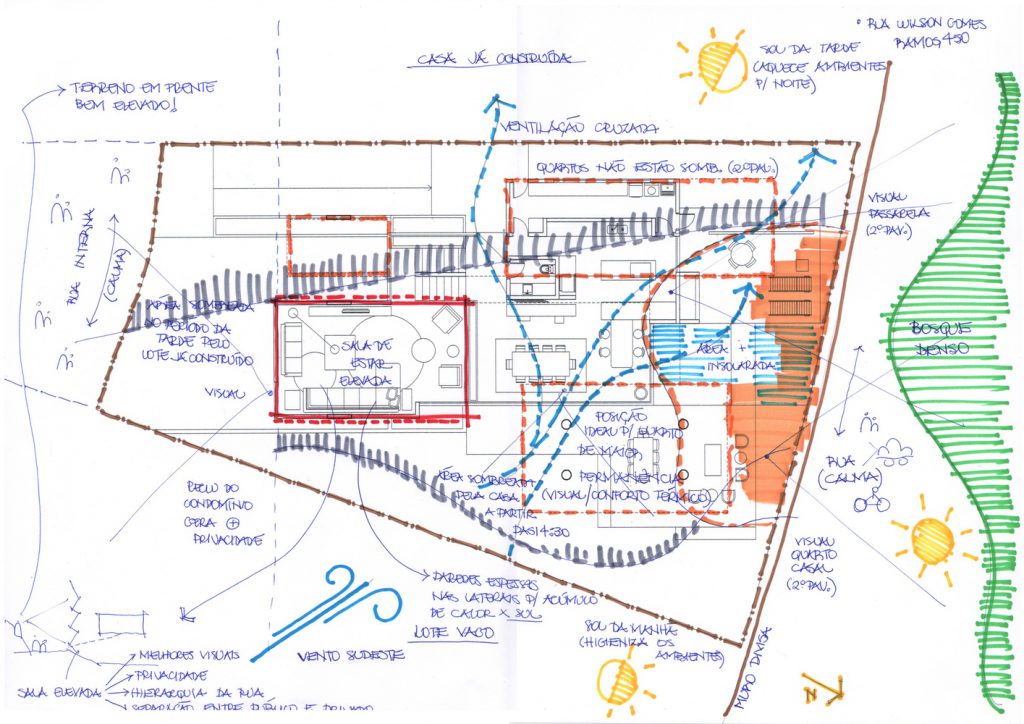 • RUA WILSON GOMES
RAMOS 450
CASA JÁ CONSTRUÍDA
SOL DA TARDE
(AQUECE AMBIENTES
P/ NOITE)
TERRENO EM FRENTE
BEM ELEVADO!
VENTILAÇÃO CRUZADA
QUARTOS NÃO ESTÃO SOMB. (2ºPAV.)
VISUAL
PASSARELA
(2ºPAV.)
RUA INTERNA
(CALMA)
ÁREA SOMBREADA
NO PERÍODO DA
TARDE PELO
LOTE JÁ CONSTRUÍDO
SALA DE
ESTAR
ELEVADA
ÁREA +
INSOLARADA
BOSQUE
DENSO
VISUAL
POSIÇÃO
IDEAL P/ QUARTO
DE MAIOR
PERMANÊNCIA
(VISUAL/CONFORTO TÉRMICO)
RUA
(CALMA)
ÁREA SOMBREADA
PELA CASA
A PARTIR
DAS 14:30
RECUO DO
CONDOMÍNIO
GERA +
PRIVACIDADE
VISUAL
QUARTO
CASAL
(2ºPAV.)
PAREDES ESPESSAS
NAS LATERAIS P/ ACÚMULO
DE CALOR X SOL
LOTE VAGO
SOL DA MANHÃ
(HIGIENIZA OS
AMBIENTES)
VENTO SUDESTE
MURO DIVISA
N
SALA ELEVADA
MELHORES VISUAIS
PRIVACIDADE
HIERARQUIA DA RUA
SEPARAÇÃO ENTRE PÚBLICO E PRIVADO